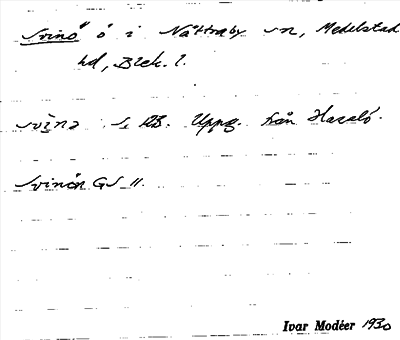 Svinö ö i Nättraby sn, Medelstad
hd, Blek. l.
svìnə S RB. Uppg. från Hasslö.
Svinön GS 11.
Ivar Modéer 1930